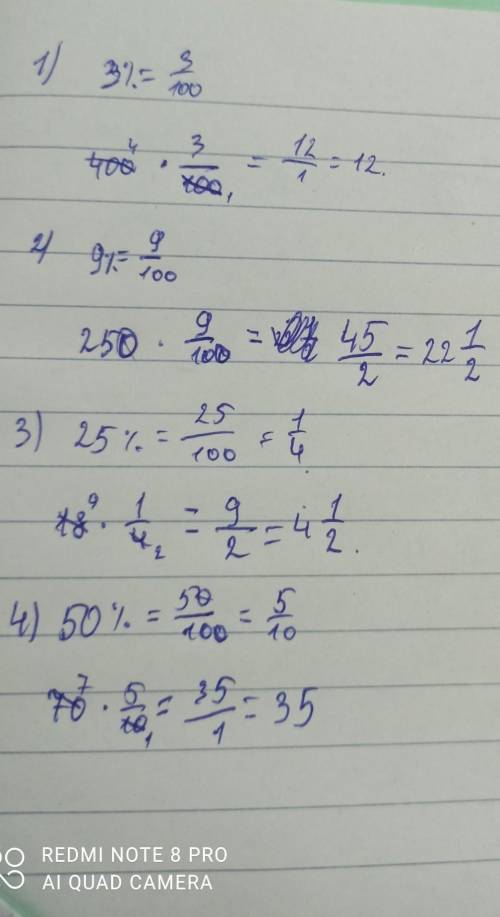 1) 3% = 3/100
400 4 · 3/100 1 = 12/1 = 12.
2) 9% = 9/100
250 · 9/100 = 45/2 = 22 1/2
3) 25% = 25/100 = 1/4
18 9 · 1/4 2 = 9/2 = 4 1/2.
4) 50% = 50/100 = 5/10
70 7 · 5/10 1 = 35/1 = 35
REDMI NOTE 8 PRO
AI QUAD CAMERA